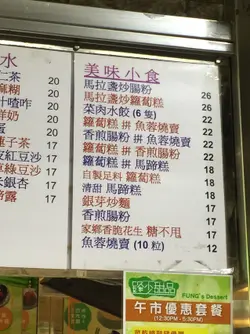 水
仁茶 20
麻糊 20
汁喳咋 17
鮮奶 20
茶 20
蓮子茶 20
皮紅豆沙 17
草綠豆沙 17
米銀杏 17
露 17
美味小食
馬拉盞炒腸粉 26
馬拉盞炒蘿蔔糕 26
菜肉水餃 (6隻) 22
蘿蔔糕 拼 魚蓉燒賣 22
香煎腸粉 拼 魚蓉燒賣 22
蘿蔔糕 拼 香煎腸粉 22
蘿蔔糕 拼 馬蹄糕 22
自製足料 蘿蔔糕 18
清甜 馬蹄糕 18
銀芽炒麵 18
香煎腸粉 17
家鄉香脆花生 糖不甩 17
魚蓉燒賣 (10粒) 12
小甜品
FUNG's Dessert
午市優惠套餐
(12:30PM-5:30PM)